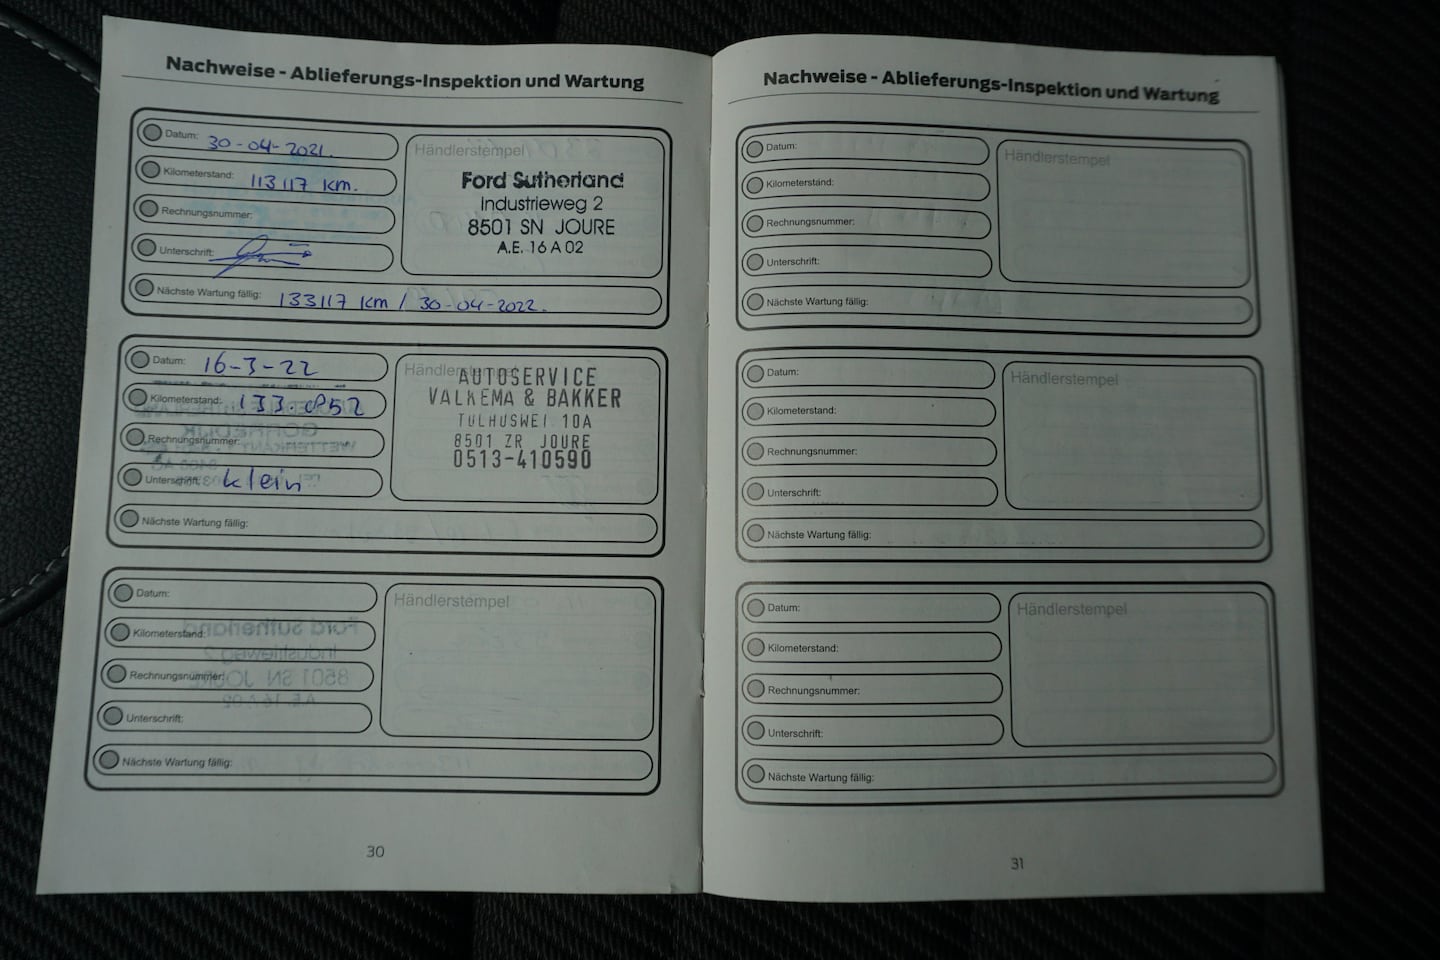 Nachweise - Ablieferungs-Inspektion und Wartung
Datum: 30-04-2021.
Kilometerstand: 113117 km.
Rechnungsnummer:
Unterschrift:
Nächste Wartung fällig: 133117 km / 30-04-2022.
Händlerstempel
Ford Sutherland
Industrieweg 2
8501 SN JOURE
A.E. 16 A 02
Datum: 16-3-22
Kilometerstand: 133.052
Rechnungsnummer:
Unterschrift: klein
Nächste Wartung fällig:
Händlerstempel
AUTOSERVICE
VALKEMA & BAKKER
10A
8501 ZR JOURE
0513-410590
Datum:
Kilometerstand:
Rechnungsnummer:
Unterschrift:
Nächste Wartung fällig:
Händlerstempel
30
Nachweise - Ablieferungs-Inspektion und Wartung
Datum:
Kilometerstand:
Rechnungsnummer:
Unterschrift:
Nächste Wartung fällig:
Händlerstempel
Datum:
Kilometerstand:
Rechnungsnummer:
Unterschrift:
Nächste Wartung fällig:
Händlerstempel
Datum:
Kilometerstand:
Rechnungsnummer:
Unterschrift:
Nächste Wartung fällig:
Händlerstempel
31